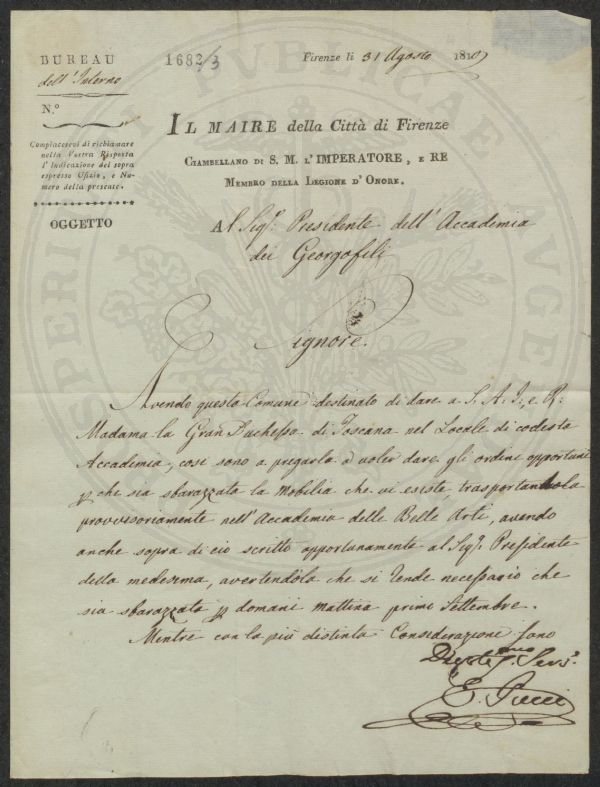 BUREAU
dell'Interno
1682/3
Firenze li 31 Agosto 1810
N.º
Compiacetevi di richiamare
nella Vostra Risposta
l'Indicazione del sopra
espresso Ufizio, e Nu-
mero della presente.
IL MAIRE della Città di Firenze
CIAMBELLANO DI S. M. L'IMPERATORE, E RE
MEMBRO DELLA LEGIONE D'ONORE.
OGGETTO
Al Sig.r Presidente dell'Accademia
dei Georgofili
Signore.
Avendo questa Comune destinato di dare a S. A. I. e R.
Madama la Gran Duchessa di Toscana nel Locale di codesta
Accademia, così sono a pregarla a voler dare gli ordini opportuni
p che sia sbarazzata la Mobilia che vi esiste, trasportandola
provvisoriamente nell'Accademia delle Belle Arti, avendo
anche sopra di ciò scritto opportunamente al Sig.r Presidente
della medesima, avertendola che si rende necessario che
sia sbarazzata p domani mattina primo Settembre.
Mentre con la più distinta Considerazione sono
E. Pucci
PROSPERITATI PUBLICAE AUGENDAE